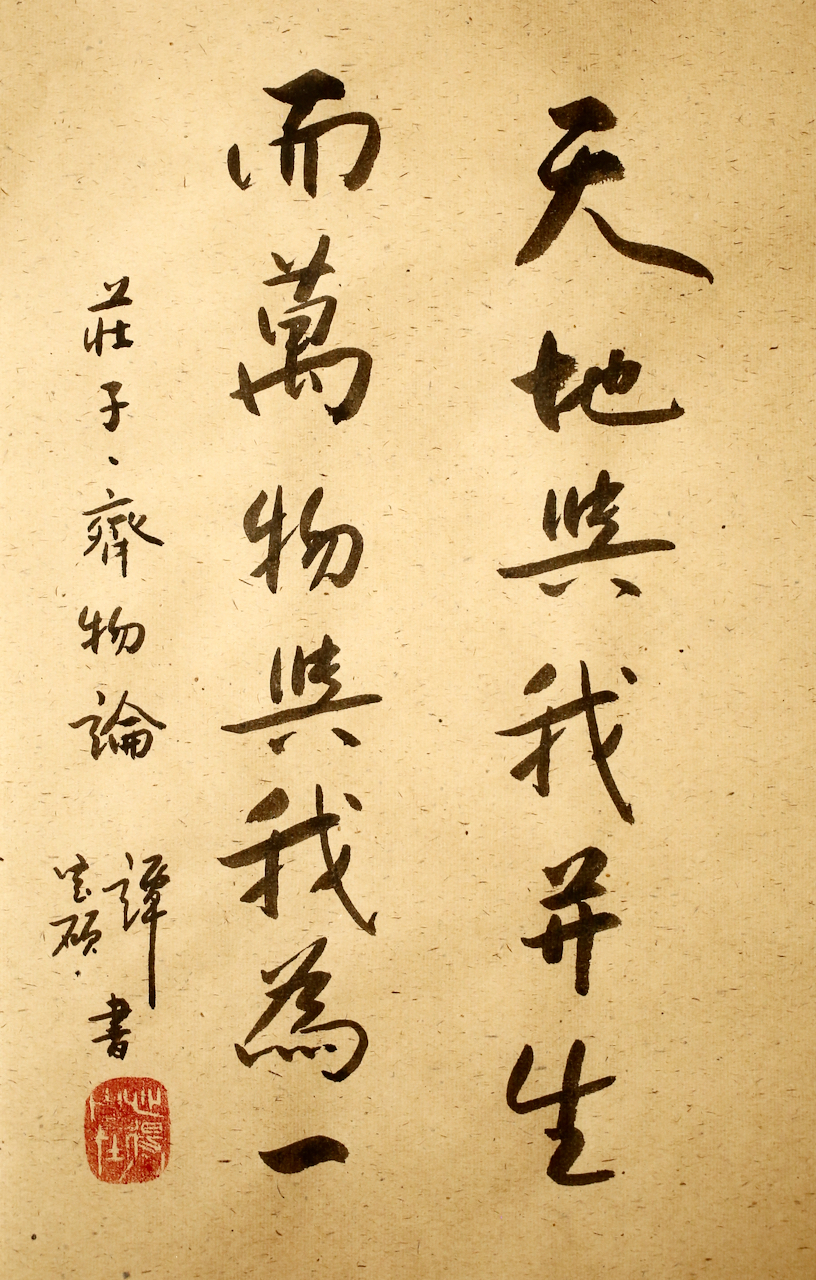 天地與我并生
而萬物與我為一
莊子·齊物論
譚
書